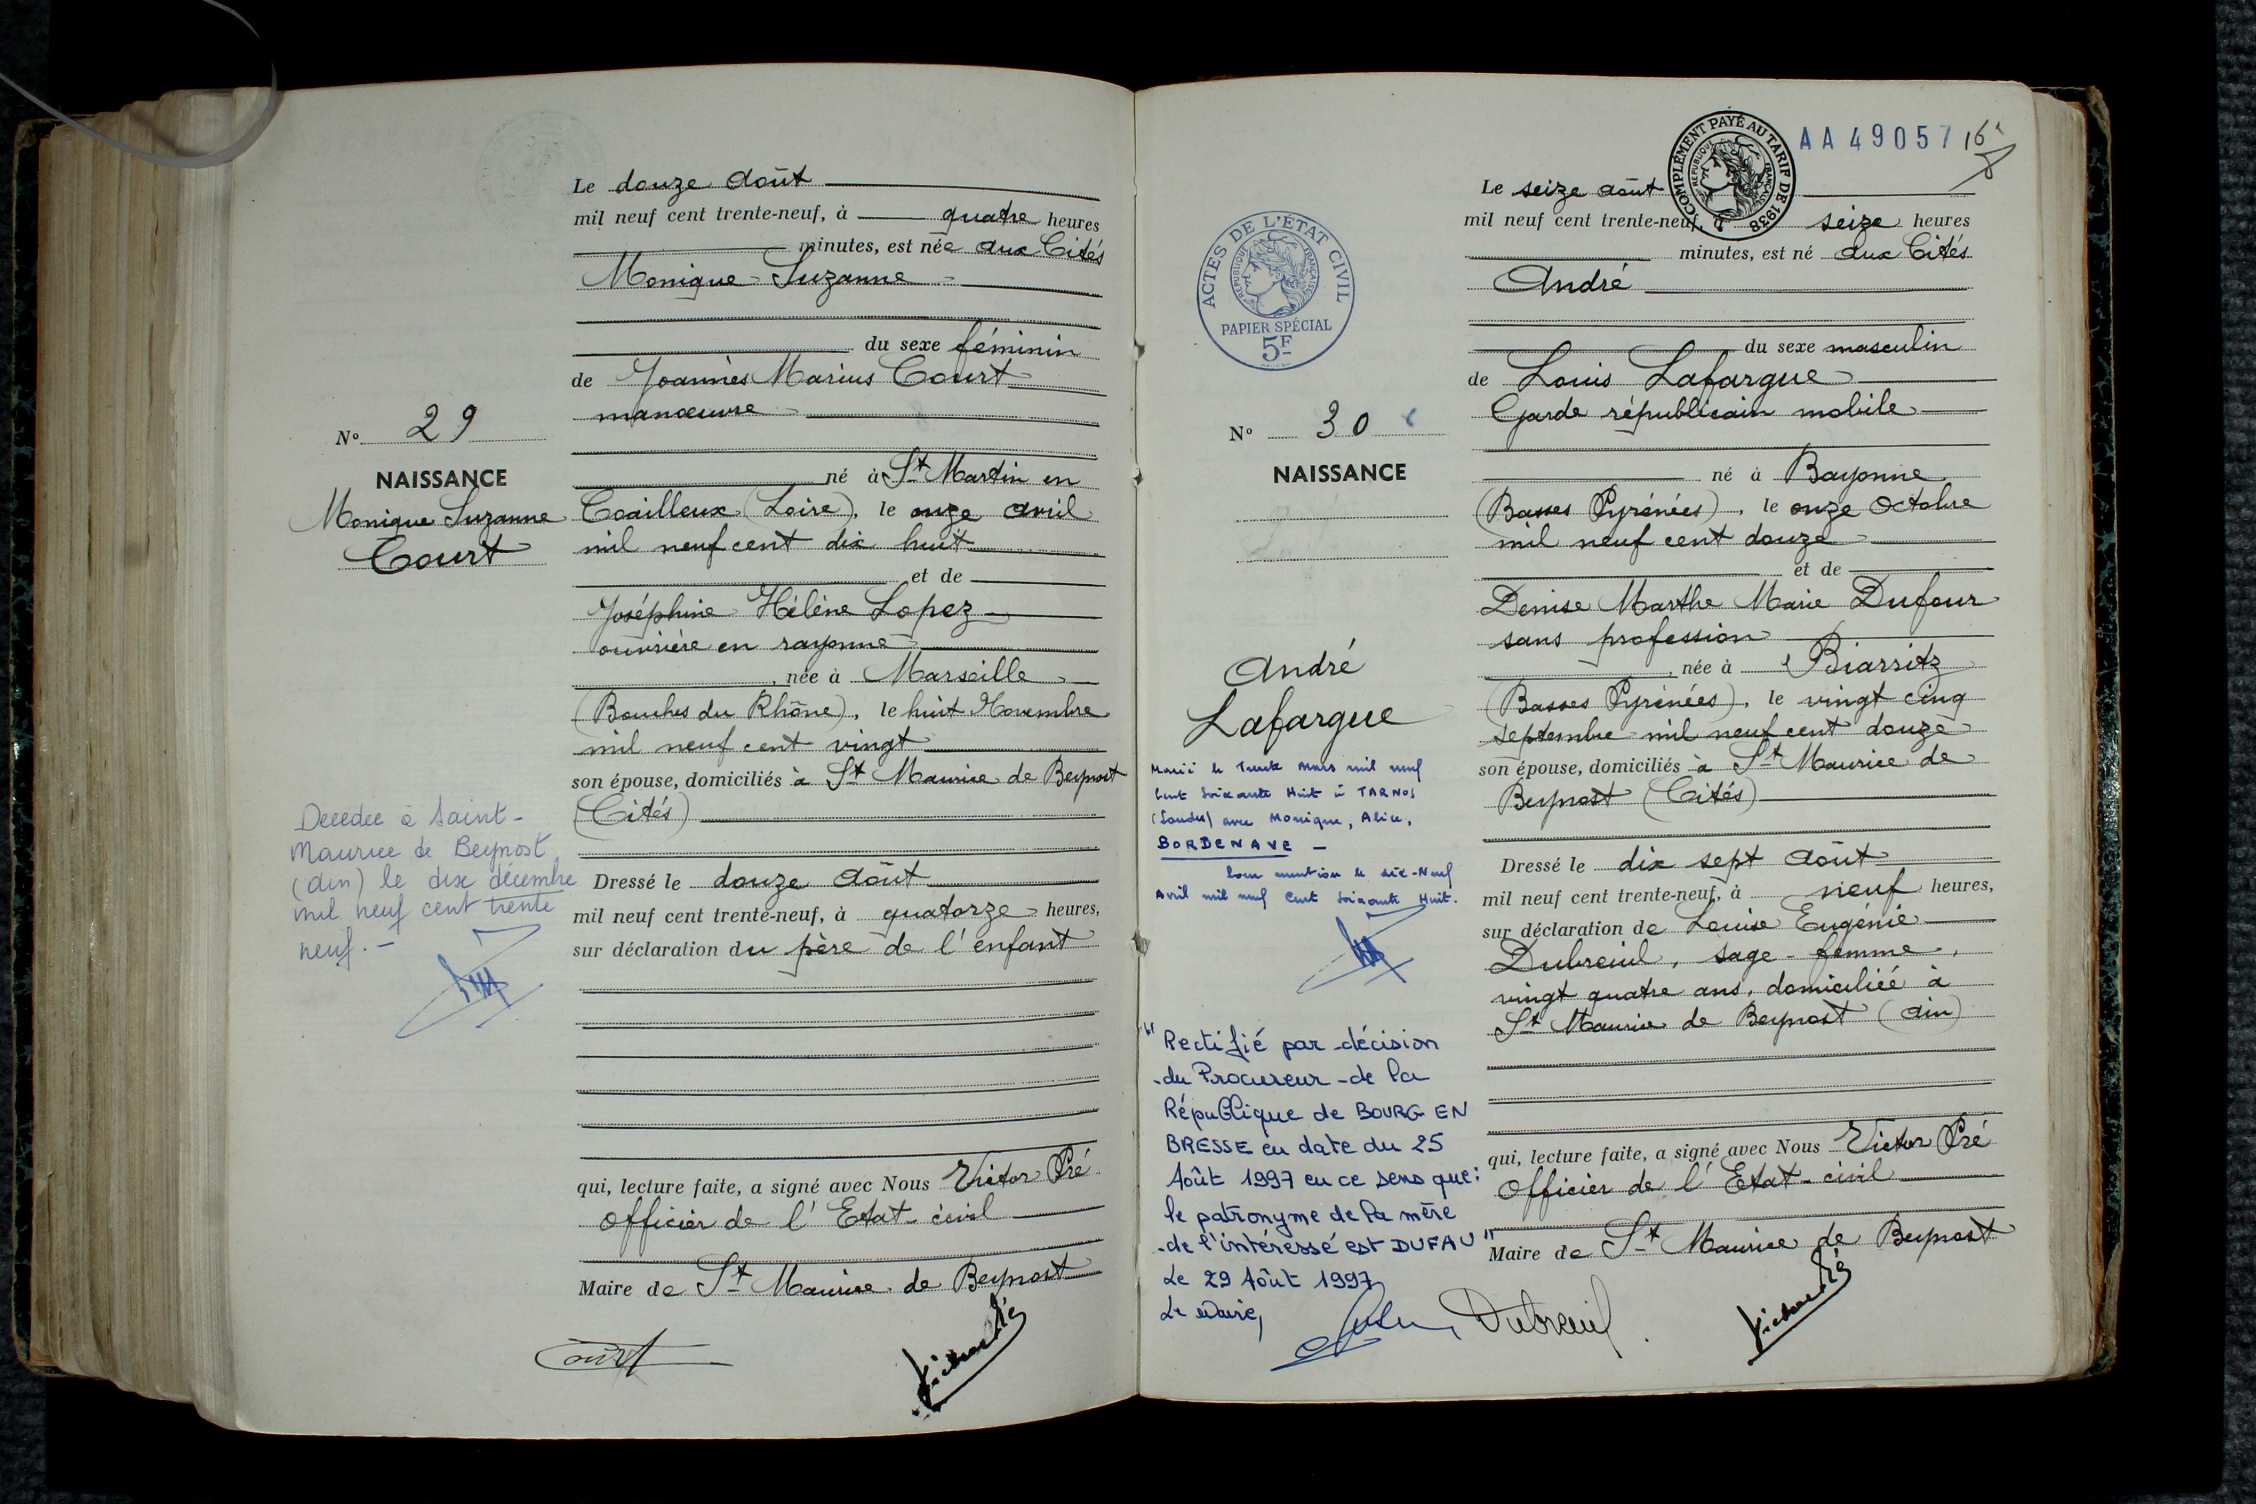 Le douze Août
mil neuf cent trente-neuf, à quatre heures
minutes, est née aux Cités
Monique Suzanne
du sexe féminin
de Joannès Marius Court
manœuvre
N° 29
NAISSANCE
Monique Suzanne
Court
né à St Martin en
Coailleux (Loire), le onze Avril
mil neuf cent dix huit
et de
Joséphine Hélène Lopez
ouvrière en rayonne
, née à Marseille
(Bouches du Rhône), le huit Novembre
mil neuf cent vingt
son épouse, domiciliés à St Maurice de Beynost
(Cités)
Décédée à Saint-
Maurice de Beynost
(Ain) le dix décembre
mil neuf cent trente
neuf. -
Dressé le douze Août
mil neuf cent trente-neuf, à quatorze heures,
sur déclaration du père de l'enfant
qui, lecture faite, a signé avec Nous Victor Pré
Officier de l'Etat-civil
Maire de St Maurice de Beynost
Court
Victor Pré
AA 49057
16
COMPLÉMENT PAYÉ AU TARIF DE 1938
RÉPUBLIQUE FRANÇAISE
Le seize Août
mil neuf cent trente-neuf, à seize heures
minutes, est né aux Cités
André
du sexe masculin
de Louis Lafargue
Garde républicain mobile
ACTES DE L'ÉTAT CIVIL
RÉPUBLIQUE FRANÇAISE
PAPIER SPÉCIAL
5F
N° 30
NAISSANCE
André
Lafargue
né à Bayonne
(Basses Pyrénées), le onze Octobre
mil neuf cent douze
et de
Denise Marthe Marie Dufour
sans profession
, née à Biarritz
(Basses Pyrénées), le vingt cinq
septembre mil neuf cent douze
son épouse, domiciliés à St Maurice de
Beynost (Cités)
Marié le Trente Mars mil neuf
Cent Soixante Huit à TARNOS
(Landes) avec Monique, Alice,
BORDENAVE -
mention le dix-Neuf
Avril mil neuf Cent Soixante Huit.
Dressé le dix sept Août
mil neuf cent trente-neuf, à neuf heures,
sur déclaration de Louise Eugénie
Dubreuil, sage-femme,
vingt quatre ans, domiciliée à
St Maurice de Beynost (Ain)
"Rectifié par décision
du Procureur de la
République de BOURG EN
BRESSE en date du 25
Août 1997 en ce sens que:
le patronyme de la mère
de l'intéressé est DUFAU"
Le 29 Août 1997
Le Maire,
qui, lecture faite, a signé avec Nous Victor Pré
Officier de l'Etat-civil
Maire de St Maurice de Beynost
Dubreuil
Victor Pré